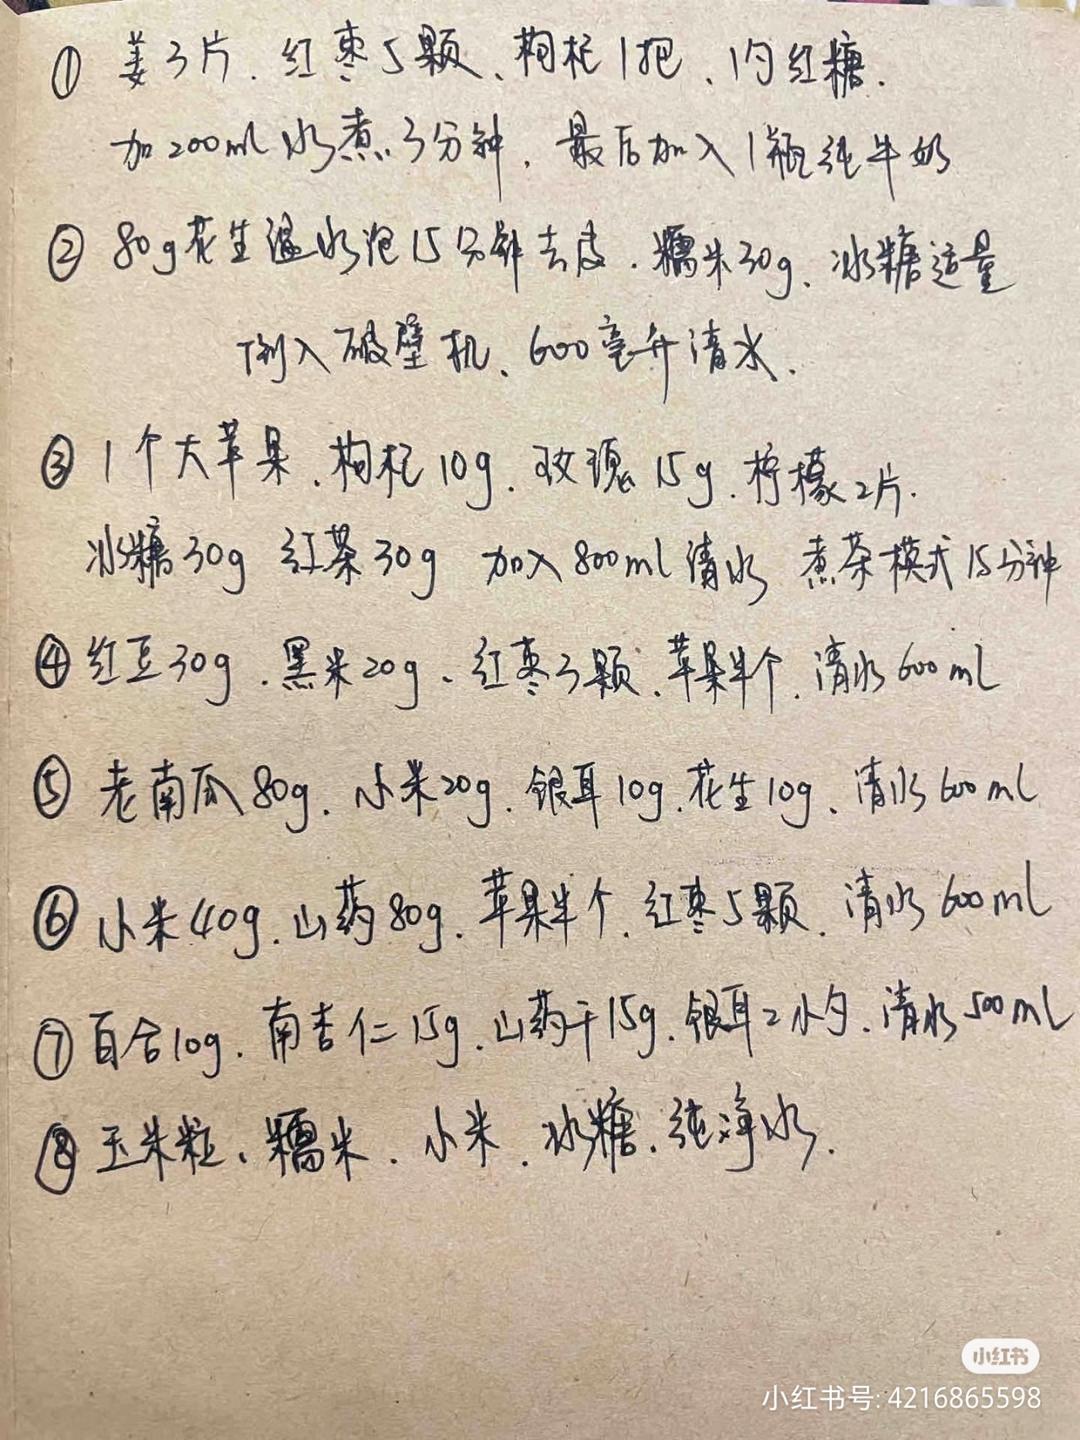 ① 姜3片、红枣5颗、枸杞1把、1勺红糖.
加200ml水煮3分钟，最后加入1瓶纯牛奶
② 80g花生温水泡15分钟去皮．糯米30g、冰糖适量
倒入破壁机、600毫升清水．
③ 1个大苹果、枸杞10g、玫瑰15g、柠檬2片.
冰糖30g 红茶30g 加入800ml清水 煮茶模式15分钟
④ 红豆30g、黑米20g、红枣3颗、苹果半个、清水600ml
⑤ 老南瓜80g、小米20g、银耳10g、花生10g、清水600ml
⑥ 小米40g、山药80g、苹果半个、红枣5颗、清水600ml
⑦ 百合10g、南杏仁15g、山药干15g、银耳2小勺、清水500ml
⑧ 玉米粒、糯米、小米、冰糖、纯净水．
小红书
小红书号: 4216865598